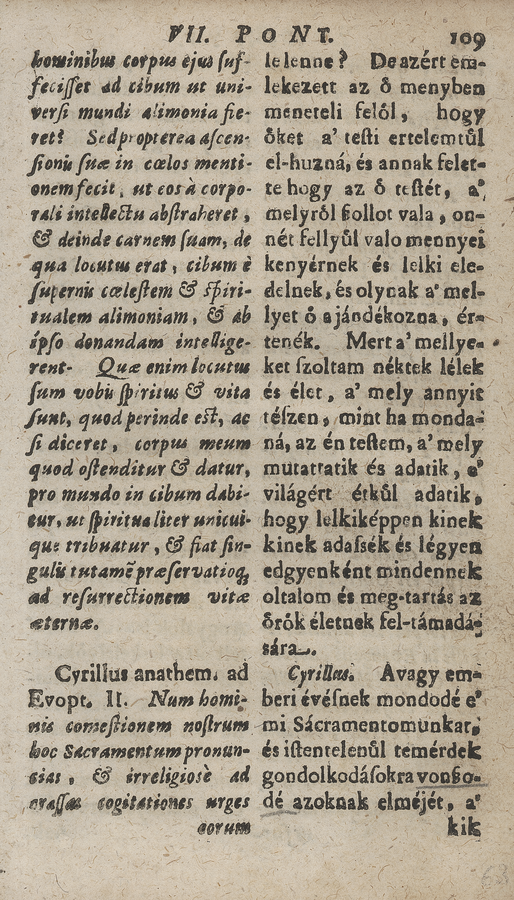 VII. PONT. 109
hominibus corpus ejus ſuf-
feciſſet ad cibum ut uni-
verſi mundi alimonia fie-
ret? Sed propterea aſcen-
ſionis ſuæ in cœlos menti-
onem fecit, ut eos à corpo-
rali intellectu abſtraheret,
& deinde carnem ſuam, de
qua locutus erat, cibum è
ſupernis cœleſtem & ſpiri-
tualem alimoniam, & ab
ipſo donandam intellige-
rent. Quæ enim locutus
ſum vobis ſpiritus & vita
ſunt, quod perinde eſt, ac
ſi diceret, corpus meum
quod oſtenditur & datur,
pro mundo in cibum dabi-
tur, ut ſpiritualiter unicui-
que tribuatur, & fiat ſin-
gulis tutamẽ præſervatioq;
ad reſurrectionem vitæ
æternæ.
Cyrillus anathem. ad
Evopt. II. Num homi-
nis comeſtionem noſtrum
hoc Sacramentum pronun-
cias, & irreligioſè ad
craſſas cogitationes urges
eorum
le lenne? De azért em-
lekezett az ő menyben
meneteli felől, hogy
őket a' teſti ertelemtűl
el-huzná, és annak felet-
te hogy az ő teſtét, a'
melyről ſzollot vala, on-
nét fellyűl valo mennyei
kenyérnek és lelki ele-
delnek, és olynak a' mel-
lyet ő ajándékozna, ér-
tenék. Mert a' mellye-
ket ſzoltam néktek lélek
és élet, a' mely annyit
téſzen, mint ha monda-
ná, az én teſtem, a' mely
mutattatik és adatik, a'
világért étkűl adatik,
hogy lelkiképpen kinek
kinek adaſsék és légyen
edgyenként mindennek
oltalom és meg-tartás az
őrők életnek fel-támadá-
sára.
Cyrillus. Avagy em-
beri évéſnek mondodé e'
mi Sácramentomunkat,
és iſtentelenűl temérdek
gondolkodáſokra vonſzo-
dé azoknak elméjét, a'
kik